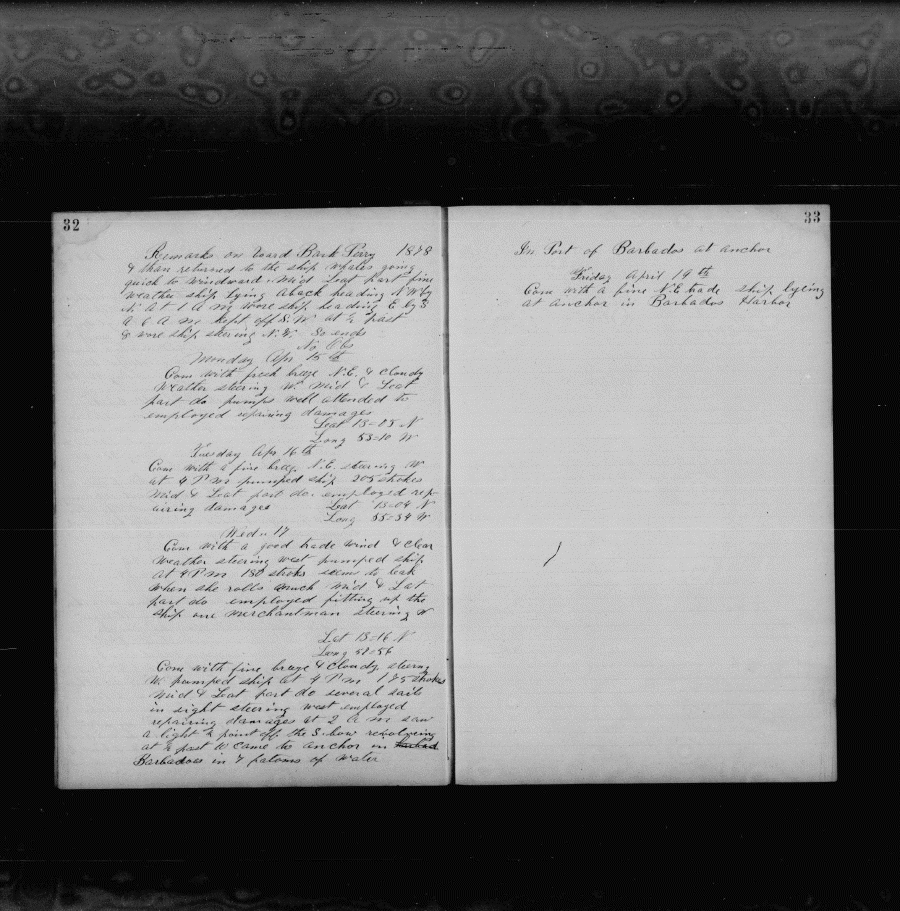 32
Remarks on board Bark Perry 1878
& than returned to the ship whales going
quick to windward. Mid & Leat part fine
weather ship lying aback heading N.W by
N. at 1 A M wore ship heading E by S
a 6 A m kept off S.W at ½ past
8 wore ship steering N.W. So ends
No Obs
Monday Apr 15th
Com with fresh breeze N.E. & Cloudy
Weather steering W. Mid & Leat
part do pumps well attended to
employed repairing damages
Leat 13=05 N
Long 53=10 W
Tuesday Apr 16th
Com with a fine breeze N.E. stearing W
at 4 P M pumped ship 205 strokes
Mid & Leat part do. employed rep-
airing damages Leat 13=04 N
Long 55=34 W
Wedn 17
Com with a good trade wind & Clear
Weather steering west pumped ship
at 4 P m 180 stroks seems to leak
when she rolls much Mid & Lat
part do employed fitting up the
ship one Merchantman steering W
Lat 13=16 N
Long 57=56
Com with fine breeze & Cloudy steering
W. pumped ship at 4 P m 175 strokes
Mid & Leat part do several sails
in sight steering west employed
repairing damages at 2 A m saw
a light ½ point off the S. bow revolveing
at ½ past 10 Came to anchor in
Barbadoes in 7 fatoms of water
33
In Port of Barbados at anchor
Friday April 19th
Com with a fine N.E trade ship lyeing
at anchor in Barbados Harbor